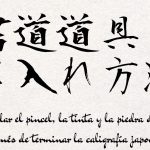 道道具
入れ方
el pincel, la tinta y la piedra
de terminar la caligrafía